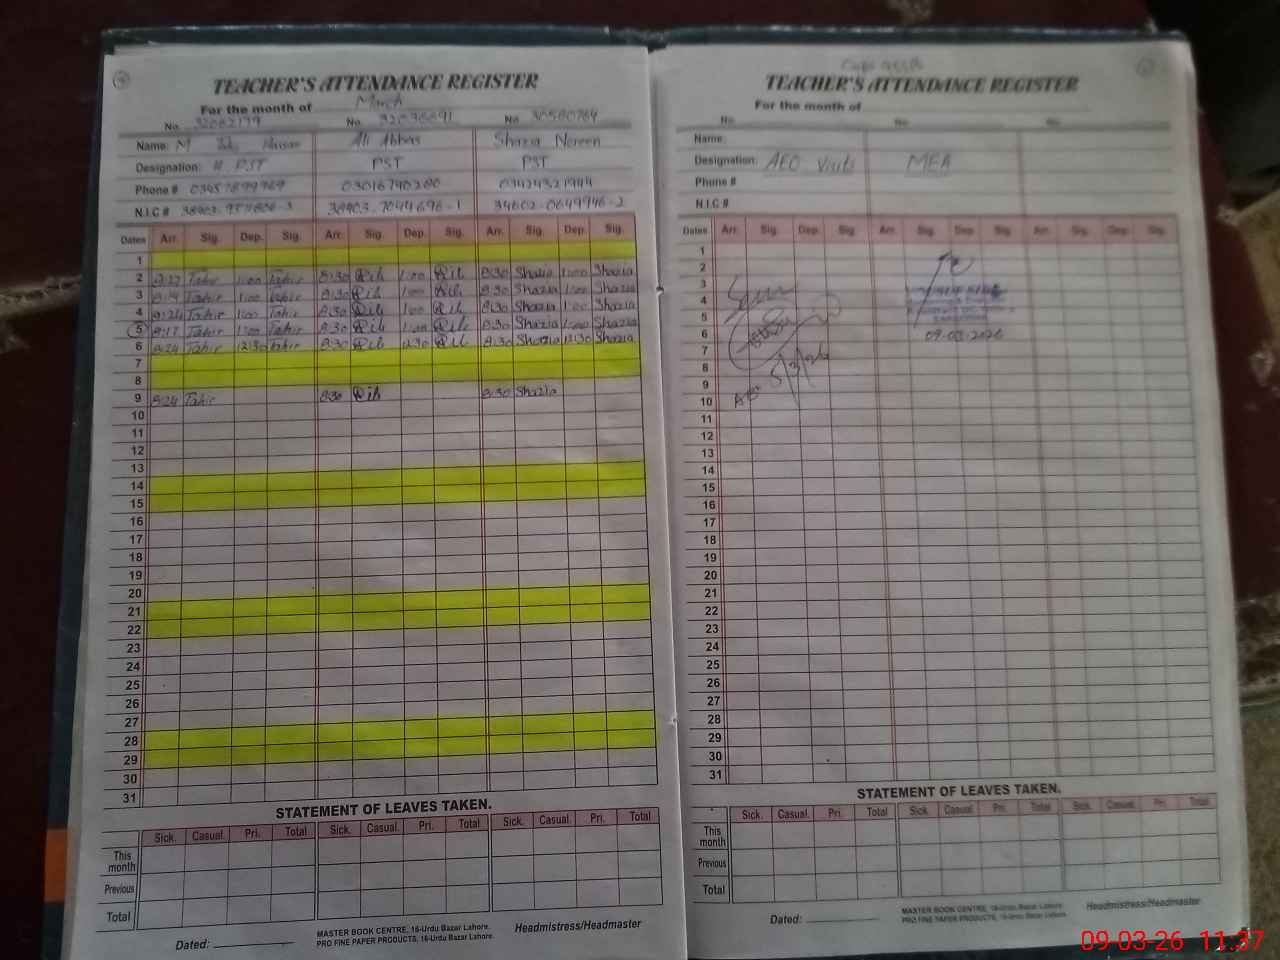 TEACHER'S ATTENDANCE REGISTER
For the month of March
No. 32082179 No. No. 30580764
Name: M Hassan Ali Abbas Shazia Noreen
Designation: H. PST PST PST
Phone # 03016740280 03424321944
N.I.C # 38403-7044696-1 34602-0649946-2
Dates Arr. Sig. Dep. Sig. Arr. Sig. Dep. Sig. Arr. Sig. Dep. Sig.
1
2 8:27 Tahir 1:00 Tahir 8:30 1:00 8:30 Shazia 1:00 Shazia
3 8:19 Tahir 1:00 Tahir 8:30 1:00 8:30 Shazia 1:00 Shazia
4 8:26 Tahir 1:00 Tahir 8:30 1:00 8:30 Shazia 1:00 Shazia
5 8:17 Tahir 1:00 Tahir 8:30 1:00 8:30 Shazia 1:00 Shazia
6 8:24 Tahir 12:30 Tahir 8:30 12:30 8:30 Shazia 12:30 Shazia
7
8
9 8:24 Tahir 8:30 8:30 Shazia
10
11
12
13
14
15
16
17
18
19
20
21
22
23
24
25
26
27
28
29
30
31
STATEMENT OF LEAVES TAKEN.
Sick. Casual. Pri. Total Sick. Casual. Pri. Total Sick. Casual. Pri. Total
This month
Previous
Total
Dated:
MASTER BOOK CENTRE, 16-Urdu Bazar Lahore.
PRO FINE PAPER PRODUCTS, 16-Urdu Bazar Lahore.
Headmistress/Headmaster
TEACHER'S ATTENDANCE REGISTER
For the month of
No. No. No.
Name:
Designation: AEO Visits MEA
Phone #
N.I.C #
Dates Arr. Sig. Dep. Sig. Arr. Sig. Dep. Sig. Arr. Sig. Dep. Sig.
1
2
3
4
5
6 09-03-2026
7
8
9 5/3/26
10 AEO
11
12
13
14
15
16
17
18
19
20
21
22
23
24
25
26
27
28
29
30
31
STATEMENT OF LEAVES TAKEN.
Sick. Casual. Pri. Total Sick. Casual. Pri. Total Sick. Casual. Pri. Total
This month
Previous
Total
Dated:
MASTER BOOK CENTRE, 16-Urdu Bazar Lahore.
PRO FINE PAPER PRODUCTS, 16-Urdu Bazar Lahore.
Headmistress/Headmaster
09-03-26 11:37